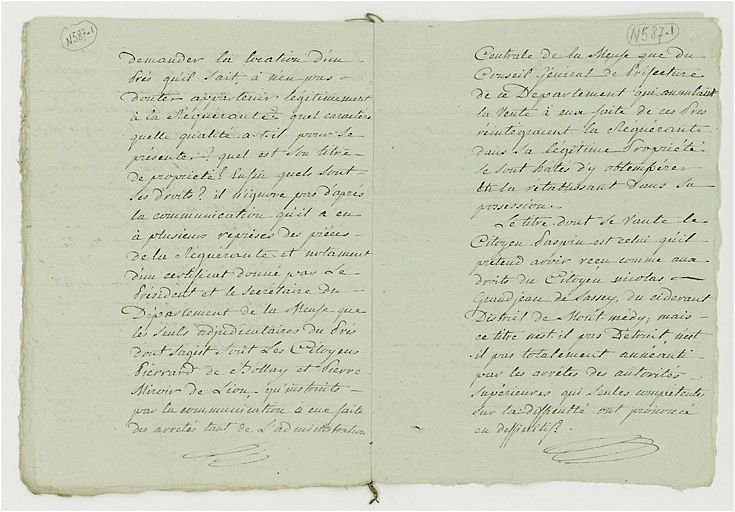 N587-1
demander la location d'un
Prés qu'il sait à n'en pas
douter appartenir légitimement
à la Réquérante? quel caractère
quelle qualité a-t-il pour se
présenter? quel est son titre
de propriété? Enfin quels sont
ses droits? il n'ignore pas d'après
la communication qu'il a eu
à plusieurs reprises des pièces
de la Réquérante et notament
d'un certificat donné par le
Président et le secrétaire du
Département de la Meuse que
les seuls adjudicataires du Prés
dont s'agit sont Les Citoyens
Pierrard de et Pierre
Miroir de Lion, qu'instruits
par la communication a eux faite
des arretés tant de L'administration
N587-1
Centrale de la Meuse que du
Conseil Général de Préfecture
de ce Département qui annulant
la Vente à eux faite de ces Prés
réintégraient la Réquérante
dans sa légitime Propriété
se sont hatés d'y obtempérer
En la rétablissant dans sa
possession.
Le titre dont se Vante le
Citoyen est celui qu'il
prétend avoir reçu comme aux
droits du Citoyen nicolas
Grandjean de Sassey, du cidevant
District de Montmedy, mais
ce titre n'est il pas Détruit, n'est
il pas totalement anéanti
par les arretés des autorités
supérieures qui seules compétentes
sur la difficulté ont prononcé
en deffinitif?